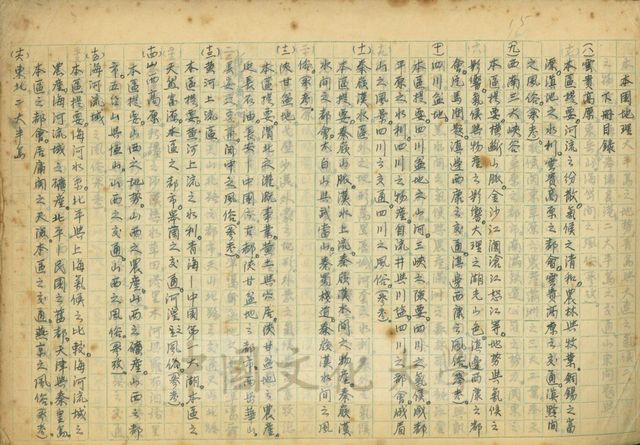 本國地理
下冊目錄
(八)雲貴高原
本區提要 河流之分散。氣候之清和。農林與牧業。銅錫之富
滇池之水利。雲貴高原之都會。雲貴高原之交通。滇黔間
之風俗。參考。
(九)西南三大峽谷
本區提要 橫斷山脈 金沙江瀾滄江怒江等。地勢與氣候之
影響。氣候與物產之影響。大理之湖光山色。滇邊西康之都
會。片馬間題。滇邊西康之交通。滇邊西康之風俗。參考。
(十)四川盆地
本區提要 四川盆地之山河。三峽之險要。四川之氣候。成都
平原之水利。四川之物產。自流井與川鹽。四川之都會。峨眉
山之風景。四川之交通。四川之風俗。參考。
(十一)秦嶺漢水區
本區提要 秦嶺山脈。漢水上流。秦嶺漢水間之物產。秦嶺漢
水間之都會。太白山與武當山。秦蜀棧道。秦嶺漢水間之風
俗。參考。
(十二)陝甘盆地
本區提要 渭北之灌溉事業。黃土與穴居。陝甘盆地之農產。
延長石油。長安—中國之古都。陝甘盆地之都市。西岳華山。
長安之交通。關中之風俗。參考。
(十三)黃河上流區
本區提要 黃河上流之水利。青海—中國第一大湖。本區之
天然富源。本區之都市。皋蘭之交通。河湟之風俗。參考。
(十四)山西高原
本區提要 山西之地勢。山西之農產。山西之礦產。山西之都
市。五台山與恆山。山西之交通。山西之風俗。參考。
(十五)海河流域
本區提要 海河水系。北平與上海氣候之比較。海河流域之
農產。海河流域之礦產。北平—民國之舊都。天津與秦皇島
本區之都會。居庸關之天險。本區之交通。燕京之風俗。參考。
(十六)東北二大半島
中國文化大學